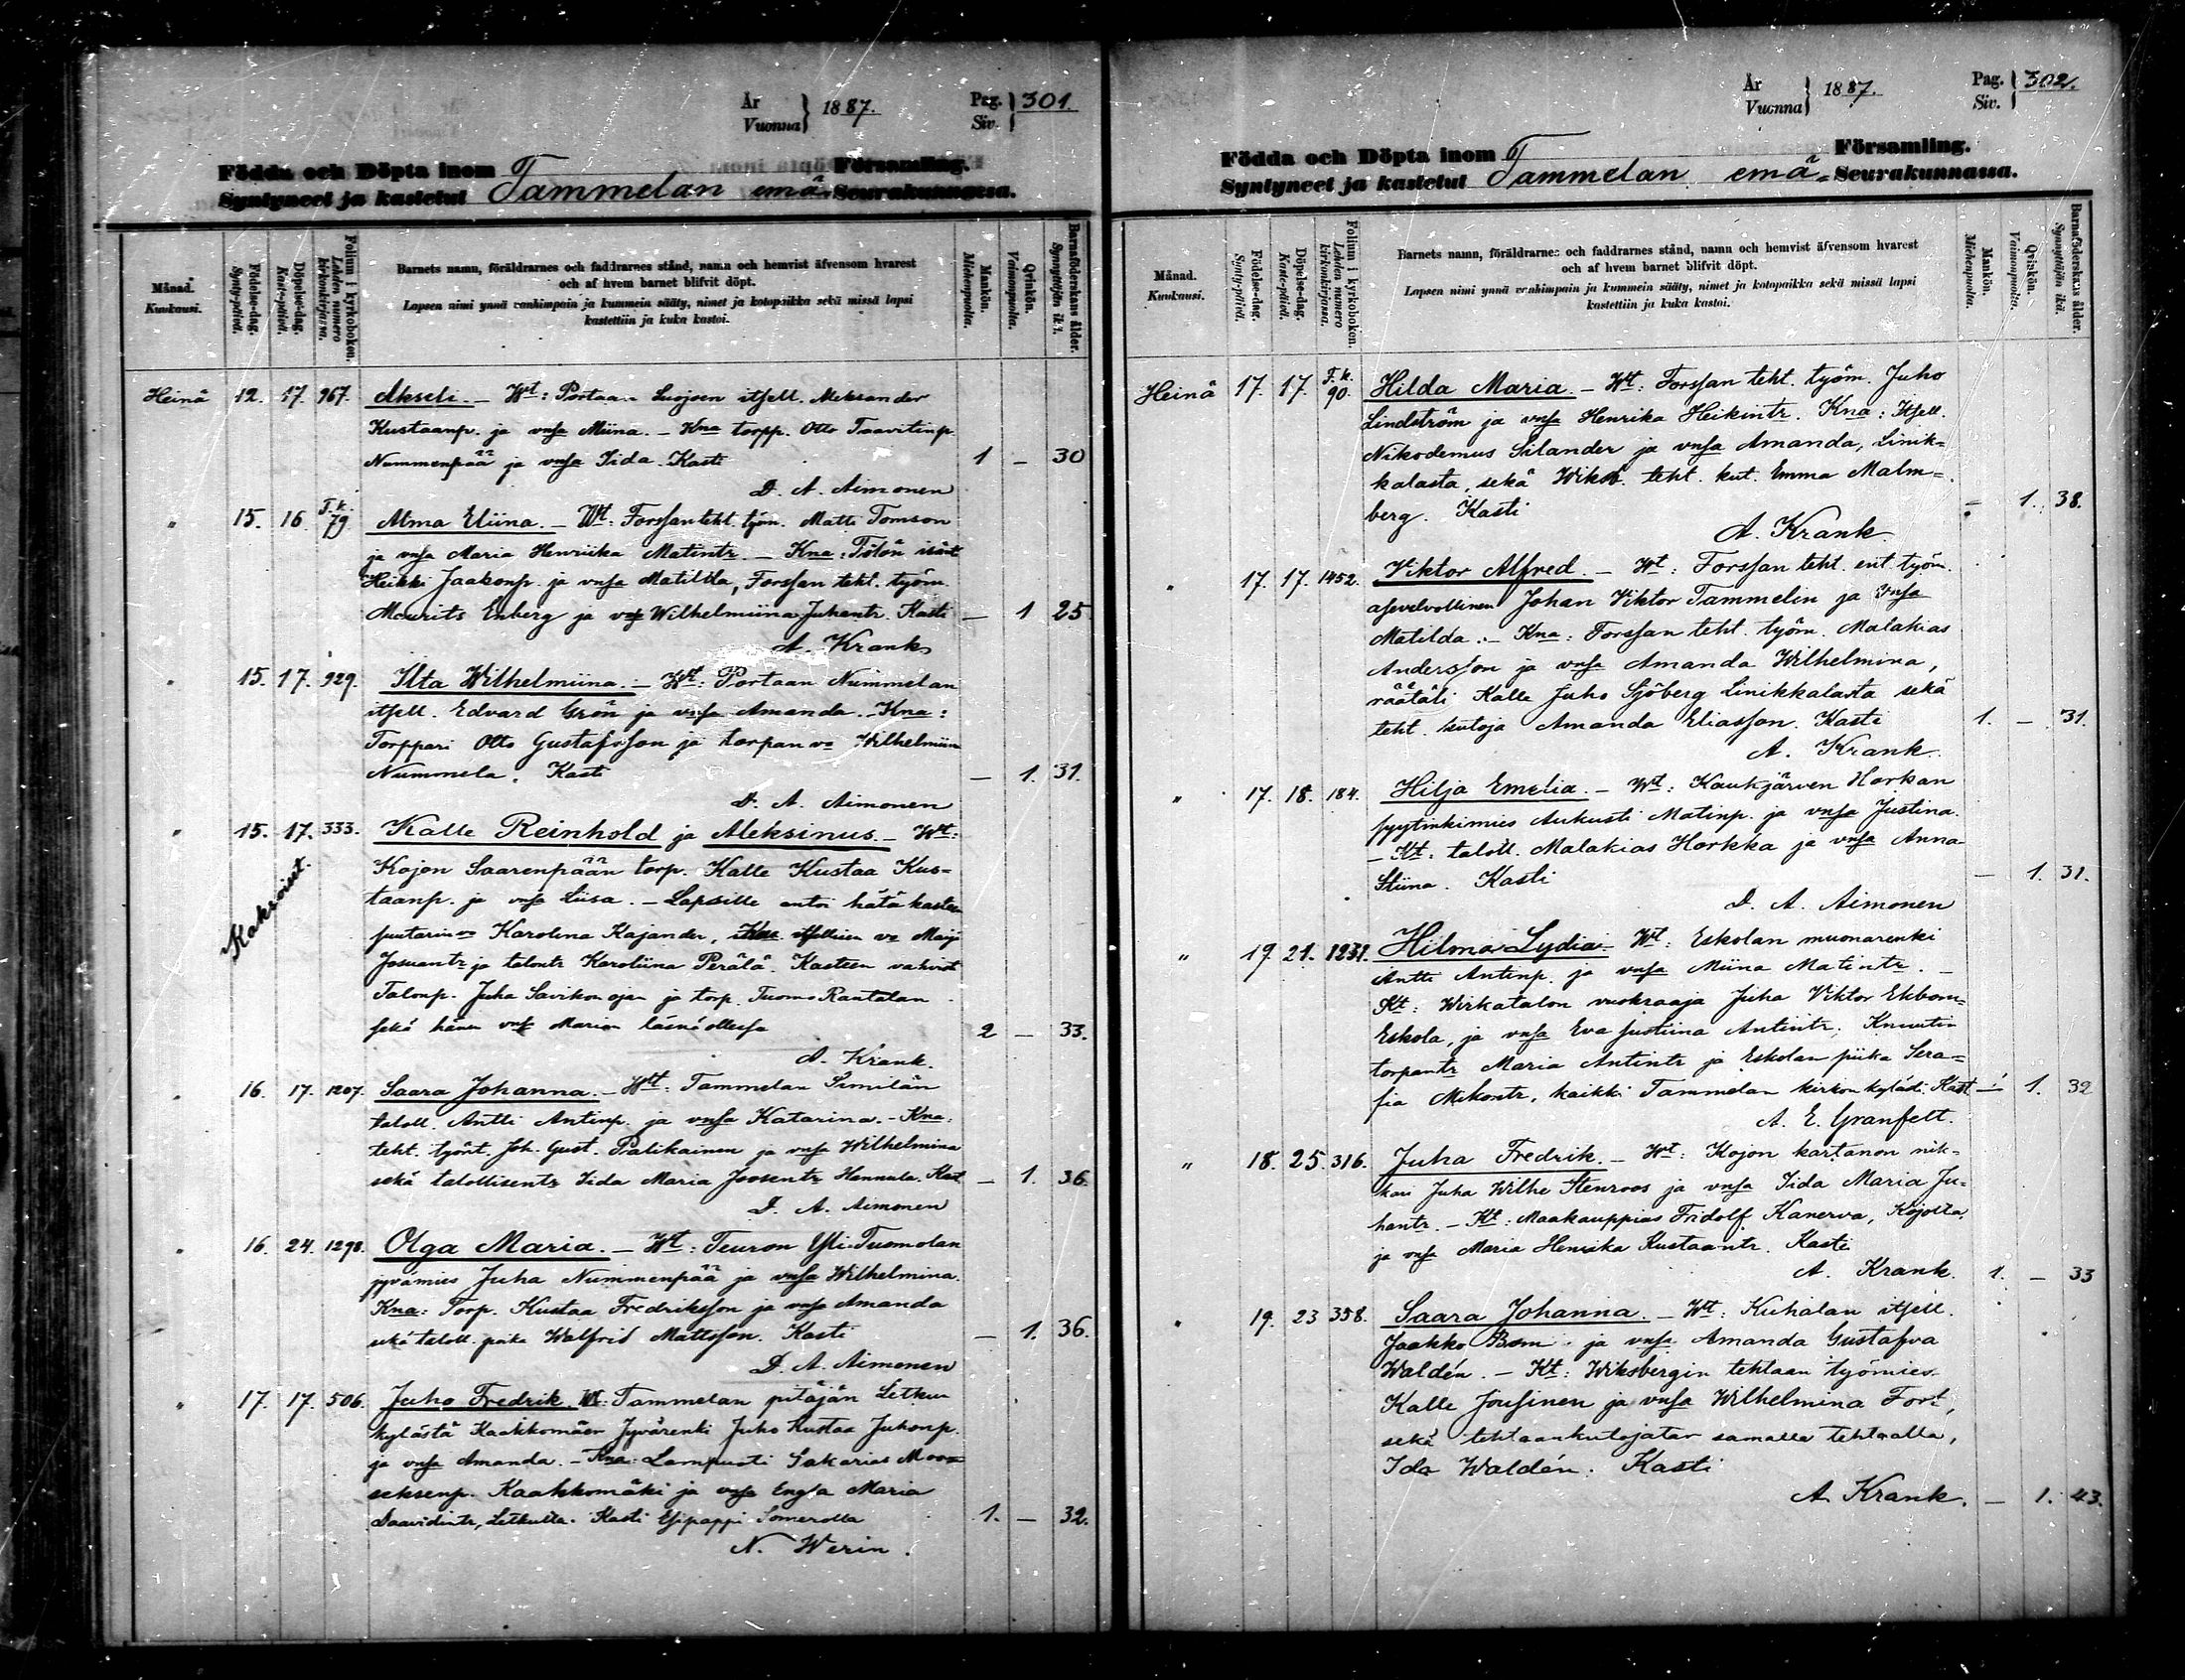 År
Vuonna } 1887.
Pag.
Siv. } 301.
Födda och Döpta inom
Syntyneet ja kastetut Tammelan emä- Församling.
Seurakunnassa.
Månad.
Kuukausi.
Födelse-dag.
Synty-päivä.
Döpelse-dag.
Kaste-päivä.
Folium i kyrkoboken.
Lehden numero kirkonkirjassa.
Barnets namn, föräldrarnes och faddrarnes stånd, namn och hemvist äfvensom hvarest
och af hvem barnet blifvit döpt.
Lapsen nimi ynnä vanhimpain ja kummein sääty, nimet ja kotopaikka sekä missä lapsi
kastettiin ja kuka kastoi.
Mankön.
Miehenpuolta.
Qvinkön.
Vaimonpuolta.
Barnaföderskans ålder.
Synnyttäjän ikä.
Heinä 12. 17. 967. Akseli. — Wt: Portaan Suojsen itsell. Aleksander
Kustaanp. ja vnsa Miina. — Kna torpp. Otto Taavitinp.
Nummenpää ja vnsa Iida. Kasti 1 — 30
D. A. Aimonen
" 15. 16. T.k. 79. Alma Eliina. — Wt: Forssan teht. työm. Matti Tomson
ja vnsa Maria Henriika Matintr. — Kna: Tölön isänt
Heikki Jaakonp. ja vnsa Matilda, Forssan teht. työm.
Mourits Enberg ja vnsa Wilhelmiina Juhantr. Kasti — 1 25
A. Krank
" 15. 17. 929. Ilta Wilhelmiina. — Wt: Portaan Nummelan
itsell. Edvard Grön ja vnsa Amanda. — Kna:
Torppari Otto Gustafsson ja torpan vo Wilhelmiin
Nummela. Kasti — 1. 31.
D. A. Aimonen
" 15. 17. 333. Kalle Reinhold ja Aleksinus. — Wt:
Kaksoiset.
Kojon Saarenpään torp. Kalle Kustaa Kus-
taanp. ja vnsa Liisa. — Lapsille antoi hätäkasteen
suutarin vo Karolina Kajander, itsellisen vo Maija
Josuantr ja talontr Karoliina Perälä. Kasteen vahvist
Talonp. Juha Savikonojan ja torp. Tuomo Rantalan
sekä hänen vnsa Marian läsnä ollessa 2 — 33.
A. Krank.
" 16. 17. 1207. Saara Johanna. — Wtt: Tammelan Similän
taloll. Antti Antinp. ja vnsa Katarina. — Kna:
teht. työnt. Joh. Gust. Pralikainen ja vnsa Wilhelmina
sekä talollisentr Iida Maria Joosentr Hannula. Kast — 1. 36
D. A. Aimonen
" 16. 24. 1298. Olga Maria. — Wt: Teuron Yli-Tuomolan
jyvämies Juha Nummenpää ja vnsa Wilhelmina.
Kna: Torp. Kustaa Fredriksson ja vnsa Amanda
sekä taloll. poika Walfrid Mattsson. Kasti — 1. 36.
D. A. Aimonen
" 17. 17. 506. Juho Fredrik. Wt: Tammelan pitäjän Letkun
kylästä Kaakkomäen Jyvärenki Juho Kustaa Juhonp.
ja vnsa Amanda. — Kna: Lampuoti Sakarias Moo-
seksenp. Kaakkomäki ja vnsa Engla Maria
Daavidintr, Letkulta. Kasti Esipappi Somerolla 1. — 32.
N. Werin.
År
Vuonna } 1887.
Pag.
Siv. } 302.
Födda och Döpta inom
Syntyneet ja kastetut Tammelan emä- Församling.
Seurakunnassa.
Månad.
Kuukausi.
Födelse-dag.
Synty-päivä.
Döpelse-dag.
Kaste-päivä.
Folium i kyrkoboken.
Lehden numero kirkonkirjassa.
Barnets namn, föräldrarnes och faddrarnes stånd, namn och hemvist äfvensom hvarest
och af hvem barnet blifvit döpt.
Lapsen nimi ynnä vanhimpain ja kummein sääty, nimet ja kotopaikka sekä missä lapsi
kastettiin ja kuka kastoi.
Mankön.
Miehenpuolta.
Qvinkön.
Vaimonpuolta.
Barnaföderskans ålder.
Synnyttäjän ikä.
Heinä 17. 17. T.k. 90. Hilda Maria. — Wt: Forssan teht. työm. Juho
Lindström ja vnsa Henrika Heikintr. Kna: Itsell.
Nikodemus Silander ja vnsa Amanda, Linik-
kalasta, sekä Wiksb. teht. kut. Emma Malm-
berg. Kasti — 1. 38.
A. Krank
" 17. 17. 1452. Viktor Alfred. — Wt: Forssan teht. ent. työm.
asevelvollinen Johan Viktor Tammelin ja vnsa
Matilda. — Kna: Forssan teht. työm. Malakias
Andersson ja vnsa Amanda Wilhelmina,
räätäli Kalle Juho Sjöberg Linikkalasta sekä
teht. kutoja Amanda Eliasson. Kasti 1. — 31.
A. Krank.
" 17. 18. 184. Hilja Emelia. — Wt: Kaukjärven Horkan
pyytinkimies Aukusti Matinp. ja vnsa Justina.
— Kt: taloll. Malakias Horkka ja vnsa Anna
Stiina. Kasti — 1. 31.
D. A. Aimonen
" 19. 21. 1231. Hilma Lydia. Wt: Eskolan muonarenki
Antti Antinp. ja vnsa Miina Matintr. —
Kt: Wirkatalon vuokraaja Juha Viktor Ekbom-
Eskola, ja vnsa Eva Justiina Antintr; Knuutin
torpantr Maria Antintr ja Eskolan piika Sera-
fia Mikontr, kaikki Tammelan kirkon kylästä. Kast — 1. 32
A. E. Granfelt.
" 18. 25. 316. Juha Fredrik. — Wt: Kojon kartanon nik-
kari Juha Wilhe Stenroos ja vnsa Iida Maria Ju-
hantr. — Kt: Maakauppias Fridolf Kanerva, Kojolta,
ja vnsa Maria Henrika Kustaantr. Kasti
A. Krank. 1. — 33
" 19. 23 358. Saara Johanna. — Wt: Kuhalan itsell.
Jaakko Bom ja vnsa Amanda Gustafva
Waldén. — Kt: Wiksbergin tehtaan työmies
Kalle Jousinen ja vnsa Wilhelmina Fort,
sekä tehtaankutojatar samalla tehtaalla,
Ida Waldén. Kasti
A. Krank. — 1. 43.